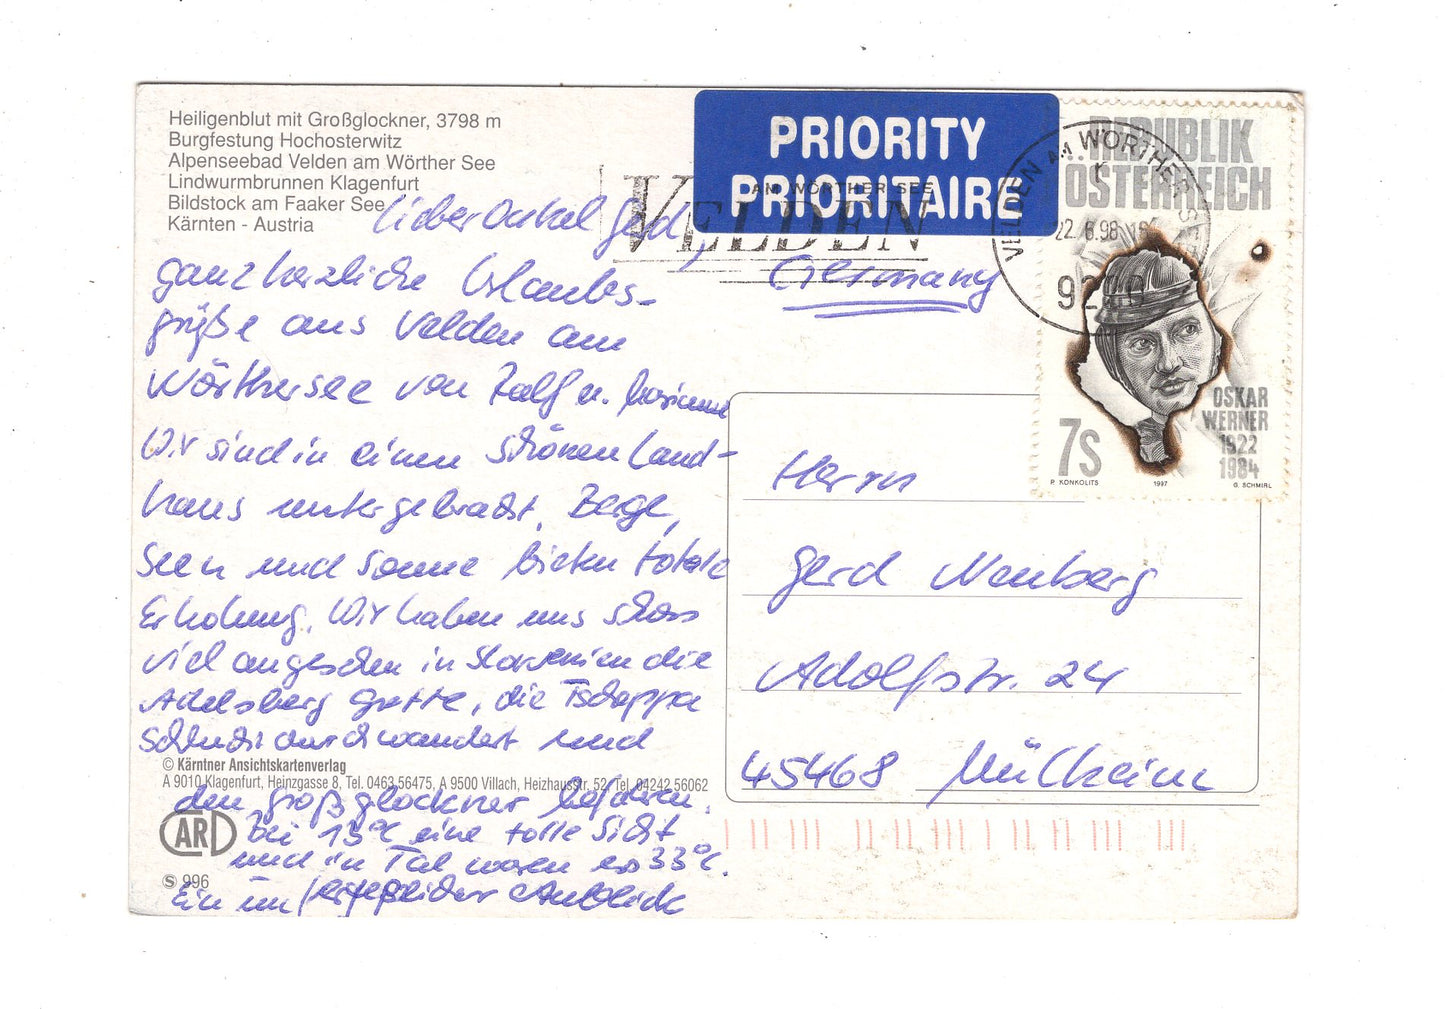 Heiligenblut mit Großglockner, 3798 m
Burgfestung Hochosterwitz
Alpenseebad Velden am Wörther See
Lindwurmbrunnen Klagenfurt
Bildstock am Faaker See
Kärnten - Austria
Lieber Onkel Gerd,
ganz herzliche Urlaubs-
grüße aus Velden am
Wörthersee von Ralf u. Marianne
Wir sind in einem schönen Land-
haus untergebracht. Berge,
Seen und Sonne bieten totale
Erholung. Wir haben uns schon
viel angesehen in Slowenien die
Adelsberg Grotte, die Tscheppa
Schlucht durchwandert und
© Kärntner Ansichtskartenverlag
A 9010 Klagenfurt, Heinzgasse 8, Tel. 0463 56475, A 9500 Villach, Heizhausstr. 52, Tel. 04242 56062
den Großglockner befahren.
bei 13°C eine tolle Sicht
und in Tal waren es 33°C.
Ein unvergeßlicher Anblick
CARD
S 996
PRIORITY
PRIORITAIRE
AM WÖRTHER SEE
VELDEN
Germany
VELDEN AM WÖRTHER SEE
22.6.98
9220
REPUBLIK
ÖSTERREICH
OSKAR
WERNER
1922
1984
7S
P. KONKOLITS
1997
G. SCHMIRL
Herrn
Gerd Neuberg
Adolfstr. 24
45468 Mülheim